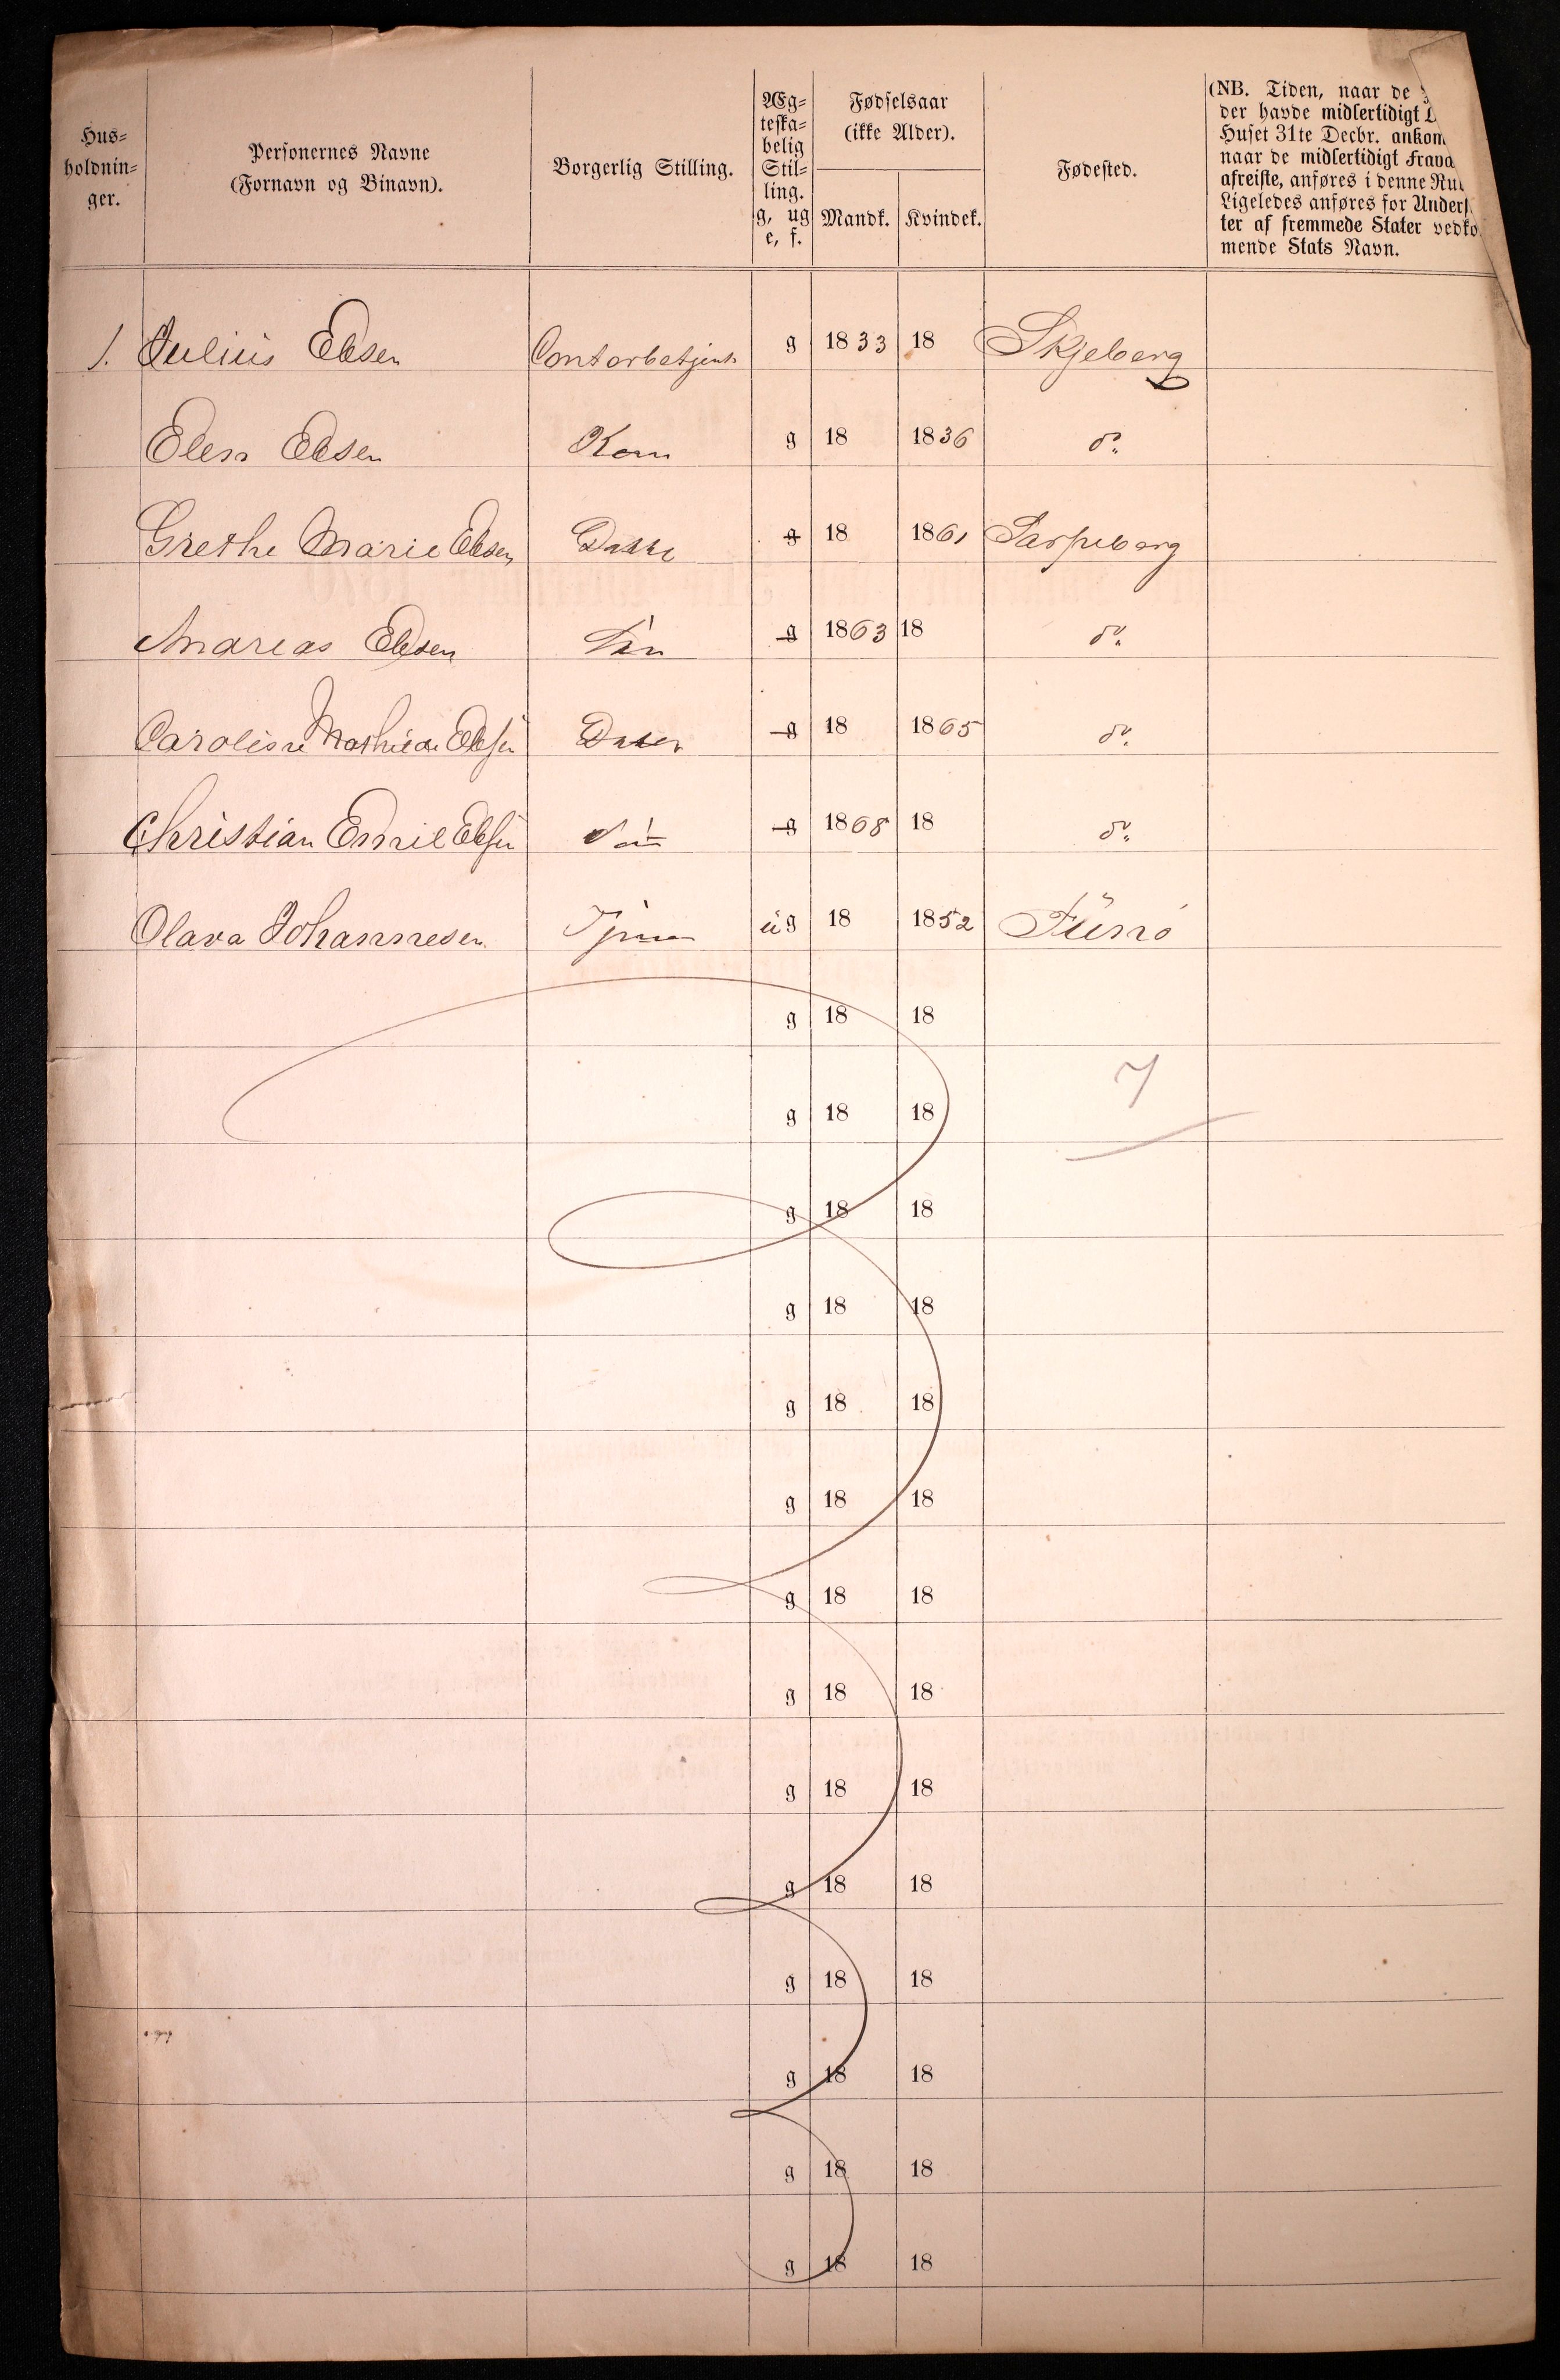 Hus-
holdnin-
ger.
Personernes Navne
(Fornavn og Binavn).
Borgerlig Stilling.
Æg-
teska-
belig
Stil-
ling.
g, ug
e, f.
Fødselsaar
(ikke Alder).
Mandk. Kvindek.
Fødested.
(NB. Tiden, naar de
der havde midlertidigt
Huset 31te Decbr. ankom
naar de midlertidigt
afreiste, anføres i denne
Ligeledes anføres for
ter af fremmede Stater
mende Stats Navn.
1. Julius Ebsen g 1833 18 Skjeberg
Elen Ebsen Kone g 18 1836 do
Grethe Marie Ebsen Datter g 18 1861 Sarpsborg
Andreas Ebsen Søn g 1863 18 do
Caroline Mathilde Ebsen Datter g 18 1865 do
Christian Emil Ebsen Søn g 1868 18 do
Olava Johannesen ug 18 1852
g 18 18
7
g 18 18
g 18 18
g 18 18
g 18 18
g 18 18
g 18 18
g 18 18
g 18 18
g 18 18
g 18 18
g 18 18
g 18 18
g 18 18